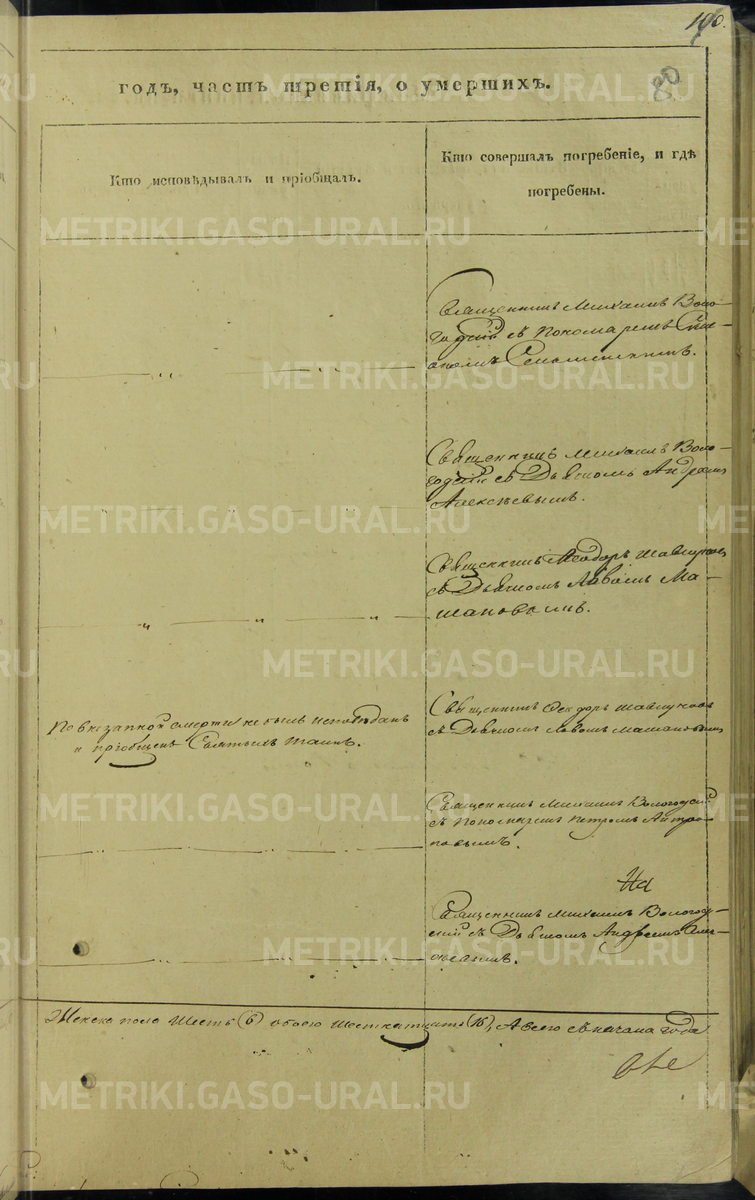 100.
80
годъ, часть третія, о умершихъ.
Кто исповѣдывалъ и пріобщалъ.
Кто совершалъ погребеніе, и гдѣ
погребены.
Священникъ Михаилъ Воло-
годскій съ Пономаремъ
Священникъ Михаилъ Воло-
годскій съ Дьячкомъ Андреемъ
Алексѣевымъ.
Священникъ Ѳеодоръ
съ Дьячкомъ Львомъ Ма-
шановымъ.
По внезапной смерти не былъ исповѣданъ
и пріобщенъ Святымъ Таинъ.
Священникъ Ѳеодоръ
съ Дьячкомъ Львомъ Машановымъ
Священникъ Михаилъ Вологодскій
съ Пономаремъ Петромъ Антро-
повымъ.
На
Священникъ Михаилъ Вологод-
скій съ Дьячкомъ Андреемъ Алек-
сѣевымъ.
Женска пола Шесть (6) обоего шестнатцать (16), А всего съ начала года
METRIKI.GASO-URAL.RU